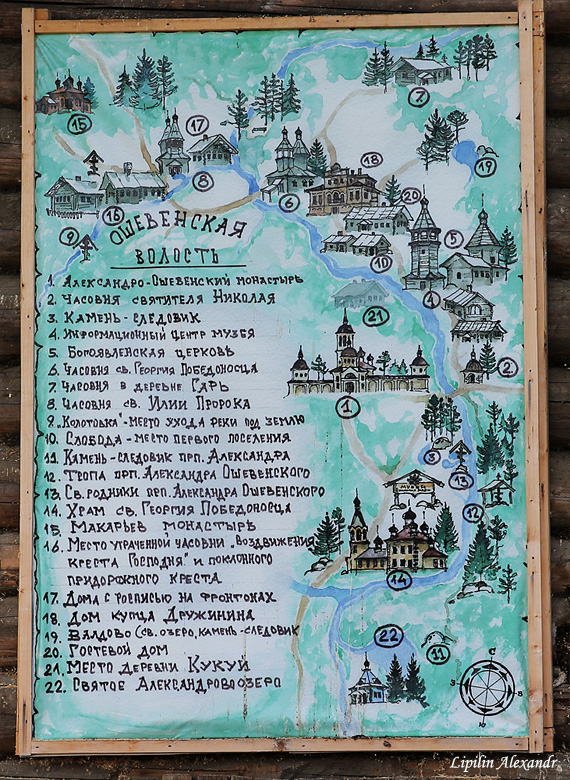 ОШЕВЕНСКАЯ
ВОЛОСТЬ
1. Александро-Ошевенский монастырь
2. Часовня святителя Николая
3. Камень-следовик
4. Информационный центр музея
5. Богоявленская церковь
6. Часовня св. Георгия Победоносца
7. Часовня в деревне Гарь
8. Часовня св. Илии Пророка
9. „Колотовка"-место ухода реки под землю
10. Слобода-место первого поселения
11. Камень-следовик прп. Александра
12. Тропа прп. Александра Ошевенского
13. Св. родники прп. Александра Ошевенского
14. Храм св. Георгия Победоносца
15. Макарьев монастырь
16. Место утраченной часовни „Воздвижения
креста Господня" и поклонного
придорожного креста
17. Дома с росписью на фронтонах
18. Дом купца Дружинина
19. Валдово (св. озеро, камень-следовик
20. Гостевой дом
21. Место деревни Кукуй
22. Святое Александрово озеро
15
17
7
18
19
8
6
20
16
9
10
5
4
21
2
1
3
13
12
14
22
11
С
З
В
Ю
Lipilin Alexandr